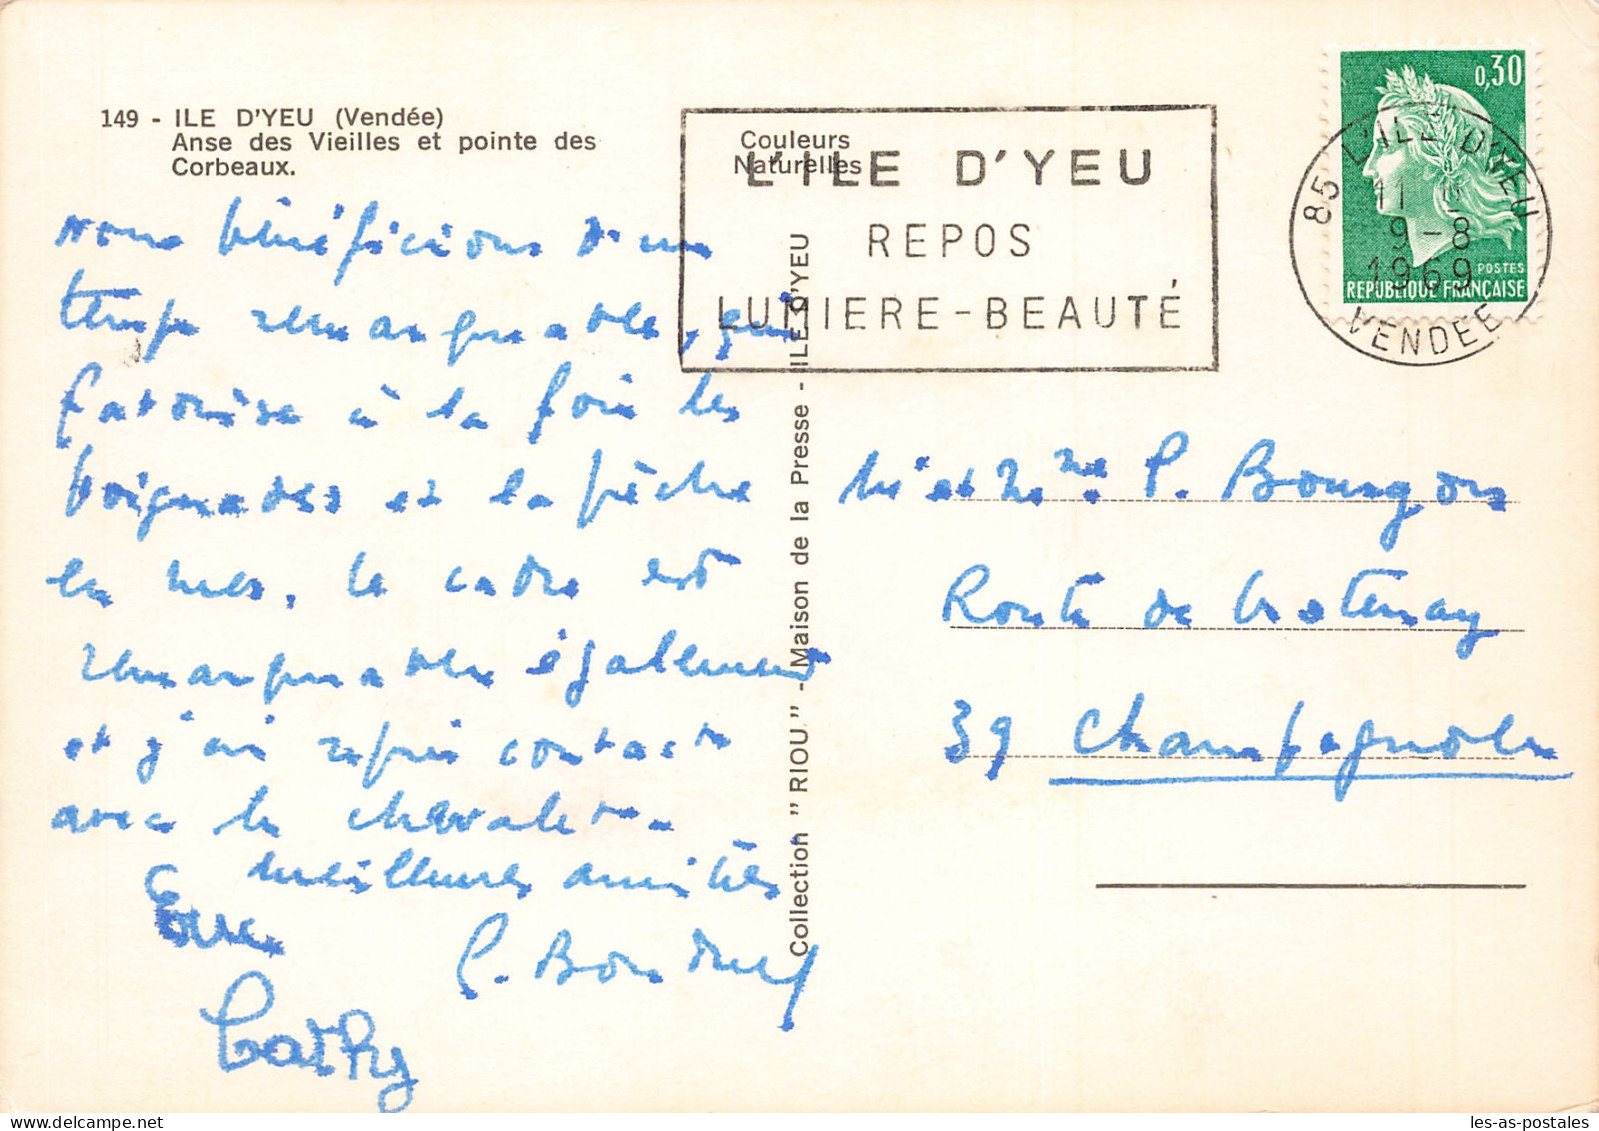 149 - ILE D'YEU (Vendée)
Anse des Vieilles et pointe des
Corbeaux.
Couleurs
Naturelles
L'ILE D'YEU
REPOS
LUMIERE-BEAUTÉ
0,30
POSTES
REPUBLIQUE FRANCAISE
85 L'ILE D'YEU
11 H
9-8
1969
VENDEE
Nous bénéficions d'un
temps remarquable, qui
favorise à la fois les
baignades et la pêche
en mer. Le cadre est
remarquable également
et j'ai repris contact
avec le
meilleures amitiés
Cathy
Collection "RIOU" - Maison de la Presse - ILE D'YEU
Mr et Mme P. Bourgon
Route de
39 Champagnole
les-as-postales